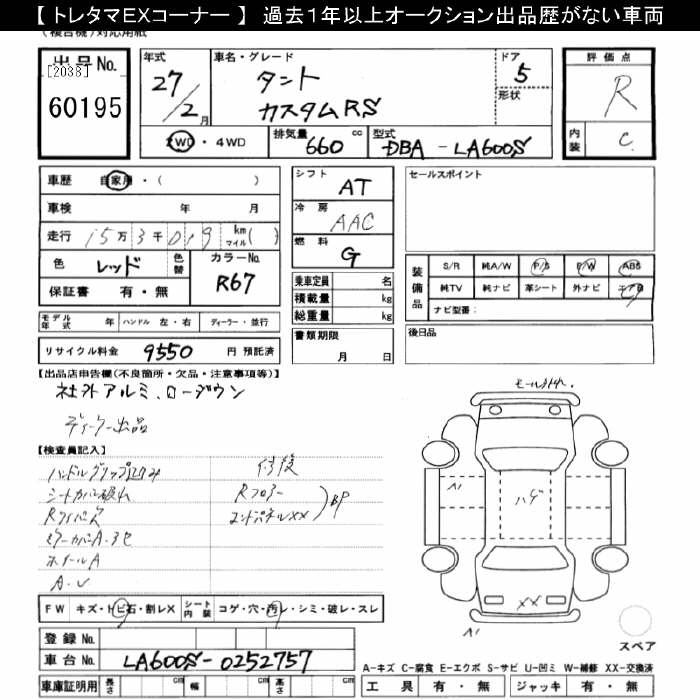 【 トレタマEXコーナー 】 過去１年以上オークション出品歴がない車両
(複合機)対応用紙
出品No.
[2038]
60195
年式
27/2月
車名・グレード
タント
カスタムRS
ドア
5
形状
2WD・4WD
排気量 660 cc
型式 DBA-LA600S
評価点
R
内装 C
車歴 自家用・( )
車検 年 月
走行 15万3千019 km マイル( )
色 レッド 色替 カラーNo. R67
保証書 有・無
シフト AT
冷房 AAC
燃料 G
乗車定員 名
積載量 kg
総重量 kg
セールスポイント
装備品
S/R 純A/W P/S P/W ABS
純TV 純ナビ 革シート 外ナビ エアB
ナビ型番：
モデル年式 年 ハンドル 左・右 ディーラー・並行
リサイクル料金 9550 円 預託済
書類期限
月 日
後日品
【出品店申告欄(不良箇所・欠品・注意事項等)】
社外アルミ、ローダウン
ディーラー出品
【検査員記入】
シートカバー破れ
修復
Rフロアー
エンドパネルXX
BP
ミラーカバーA・3セ
ホイールA
A・U
A1
ハゲ
XX
A1
FW キズ・トビ石・割レX シート内装 コゲ・穴・汚レ・シミ・破レ・スレ
登録 No.
車台 No. LA600S-0252757
車庫証明用 長さ cm 幅 cm 高さ cm
スペア
A-キズ C-腐食 E-エクボ S-サビ U-凹ミ W-補修 XX-交換済
工具 有・無 ジャッキ 有・無